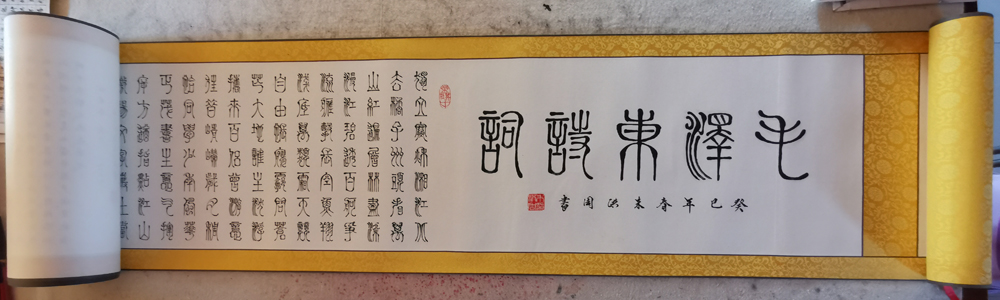 毛澤東詩詞
癸巳年春朱洪書
獨立寒秋湘江北
去橘子洲頭看萬
山紅遍層林盡染
漫江碧透百舸爭
流鷹擊長空魚翔
淺底萬類霜天競
自由悵寥廓問蒼
茫大地誰主沉浮
攜來百侶曾遊憶
往昔崢嶸歲月稠
恰同學少年風華
正茂書生意氣揮
斥方遒指點江山
激揚文字糞土當